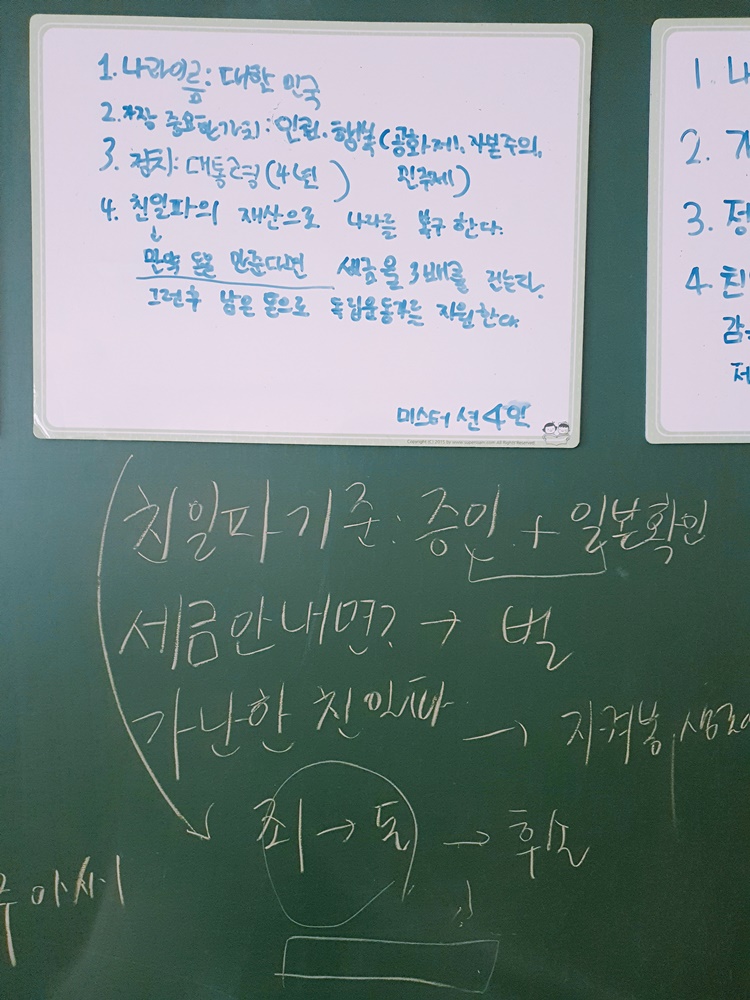 1. 나라이름: 대한 민국
2. 가장 중요한가치: 인권, 행복(공화제, 자본주의, 민주제)
3. 정치: 대통령(4년)
4. 친일파의 재산으로 나라를 복구 한다.
만약 돈을 안준다면 세금을 3배로 걷는다.
그런후 남은 돈으로 독립운동가를 지원한다.
미스터 션4인
1. 나
2.
3. 정
4. 친
친일파기준: 증인 + 일본확인
세금안내면? → 벌
가난한 친일파 →
죄 → 돈 → 후손
아씨